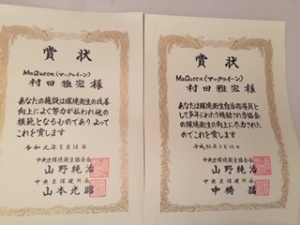 賞状
MaQueen(マークゥイーン)
村田雅宏 様
あなたの施設は環境衛生の改善
向上によく努力が払われ他の
模範となるものでありよって
これを賞します
令和元年5月16日
中央区環境衛生協会長
山野純治
中央区保健所長
山本光昭
賞状
MaQueen(マークゥイーン)
村田雅宏 様
あなたは環境衛生自治指導員と
して多年にわたり
環境衛生の向上に尽力された
のでこれを賞します
中央区環境衛生協会長
山野純治
中央区保健所長
中橋